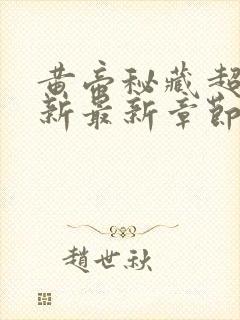 黄帝秘藏超
新最新章節
趙世秋